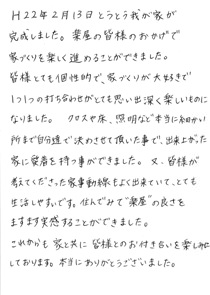 H22年2月13日とうとう我が家が
完成しました。薬屋の皆様のおかげで
家づくりを楽しく進めることができました。
皆様とても個性的で、家づくりが大好きで
1つ1つの打ち合わせがとても思い出深く楽しいものに
なりました。クロスや床、照明など本当に細かい
所まで自分達で決めさせて頂いた事で、出来上がった
家に愛着を持つ事ができました。又、皆様が
考えてくださった家事動線もよく出来ていて、とても
生活しやすいです。住んでみて"薬屋"の良さを
ますます実感することができました。
これからも家と共に皆様とのお付き合いを楽しみに
しております。本当にありがとうございました。